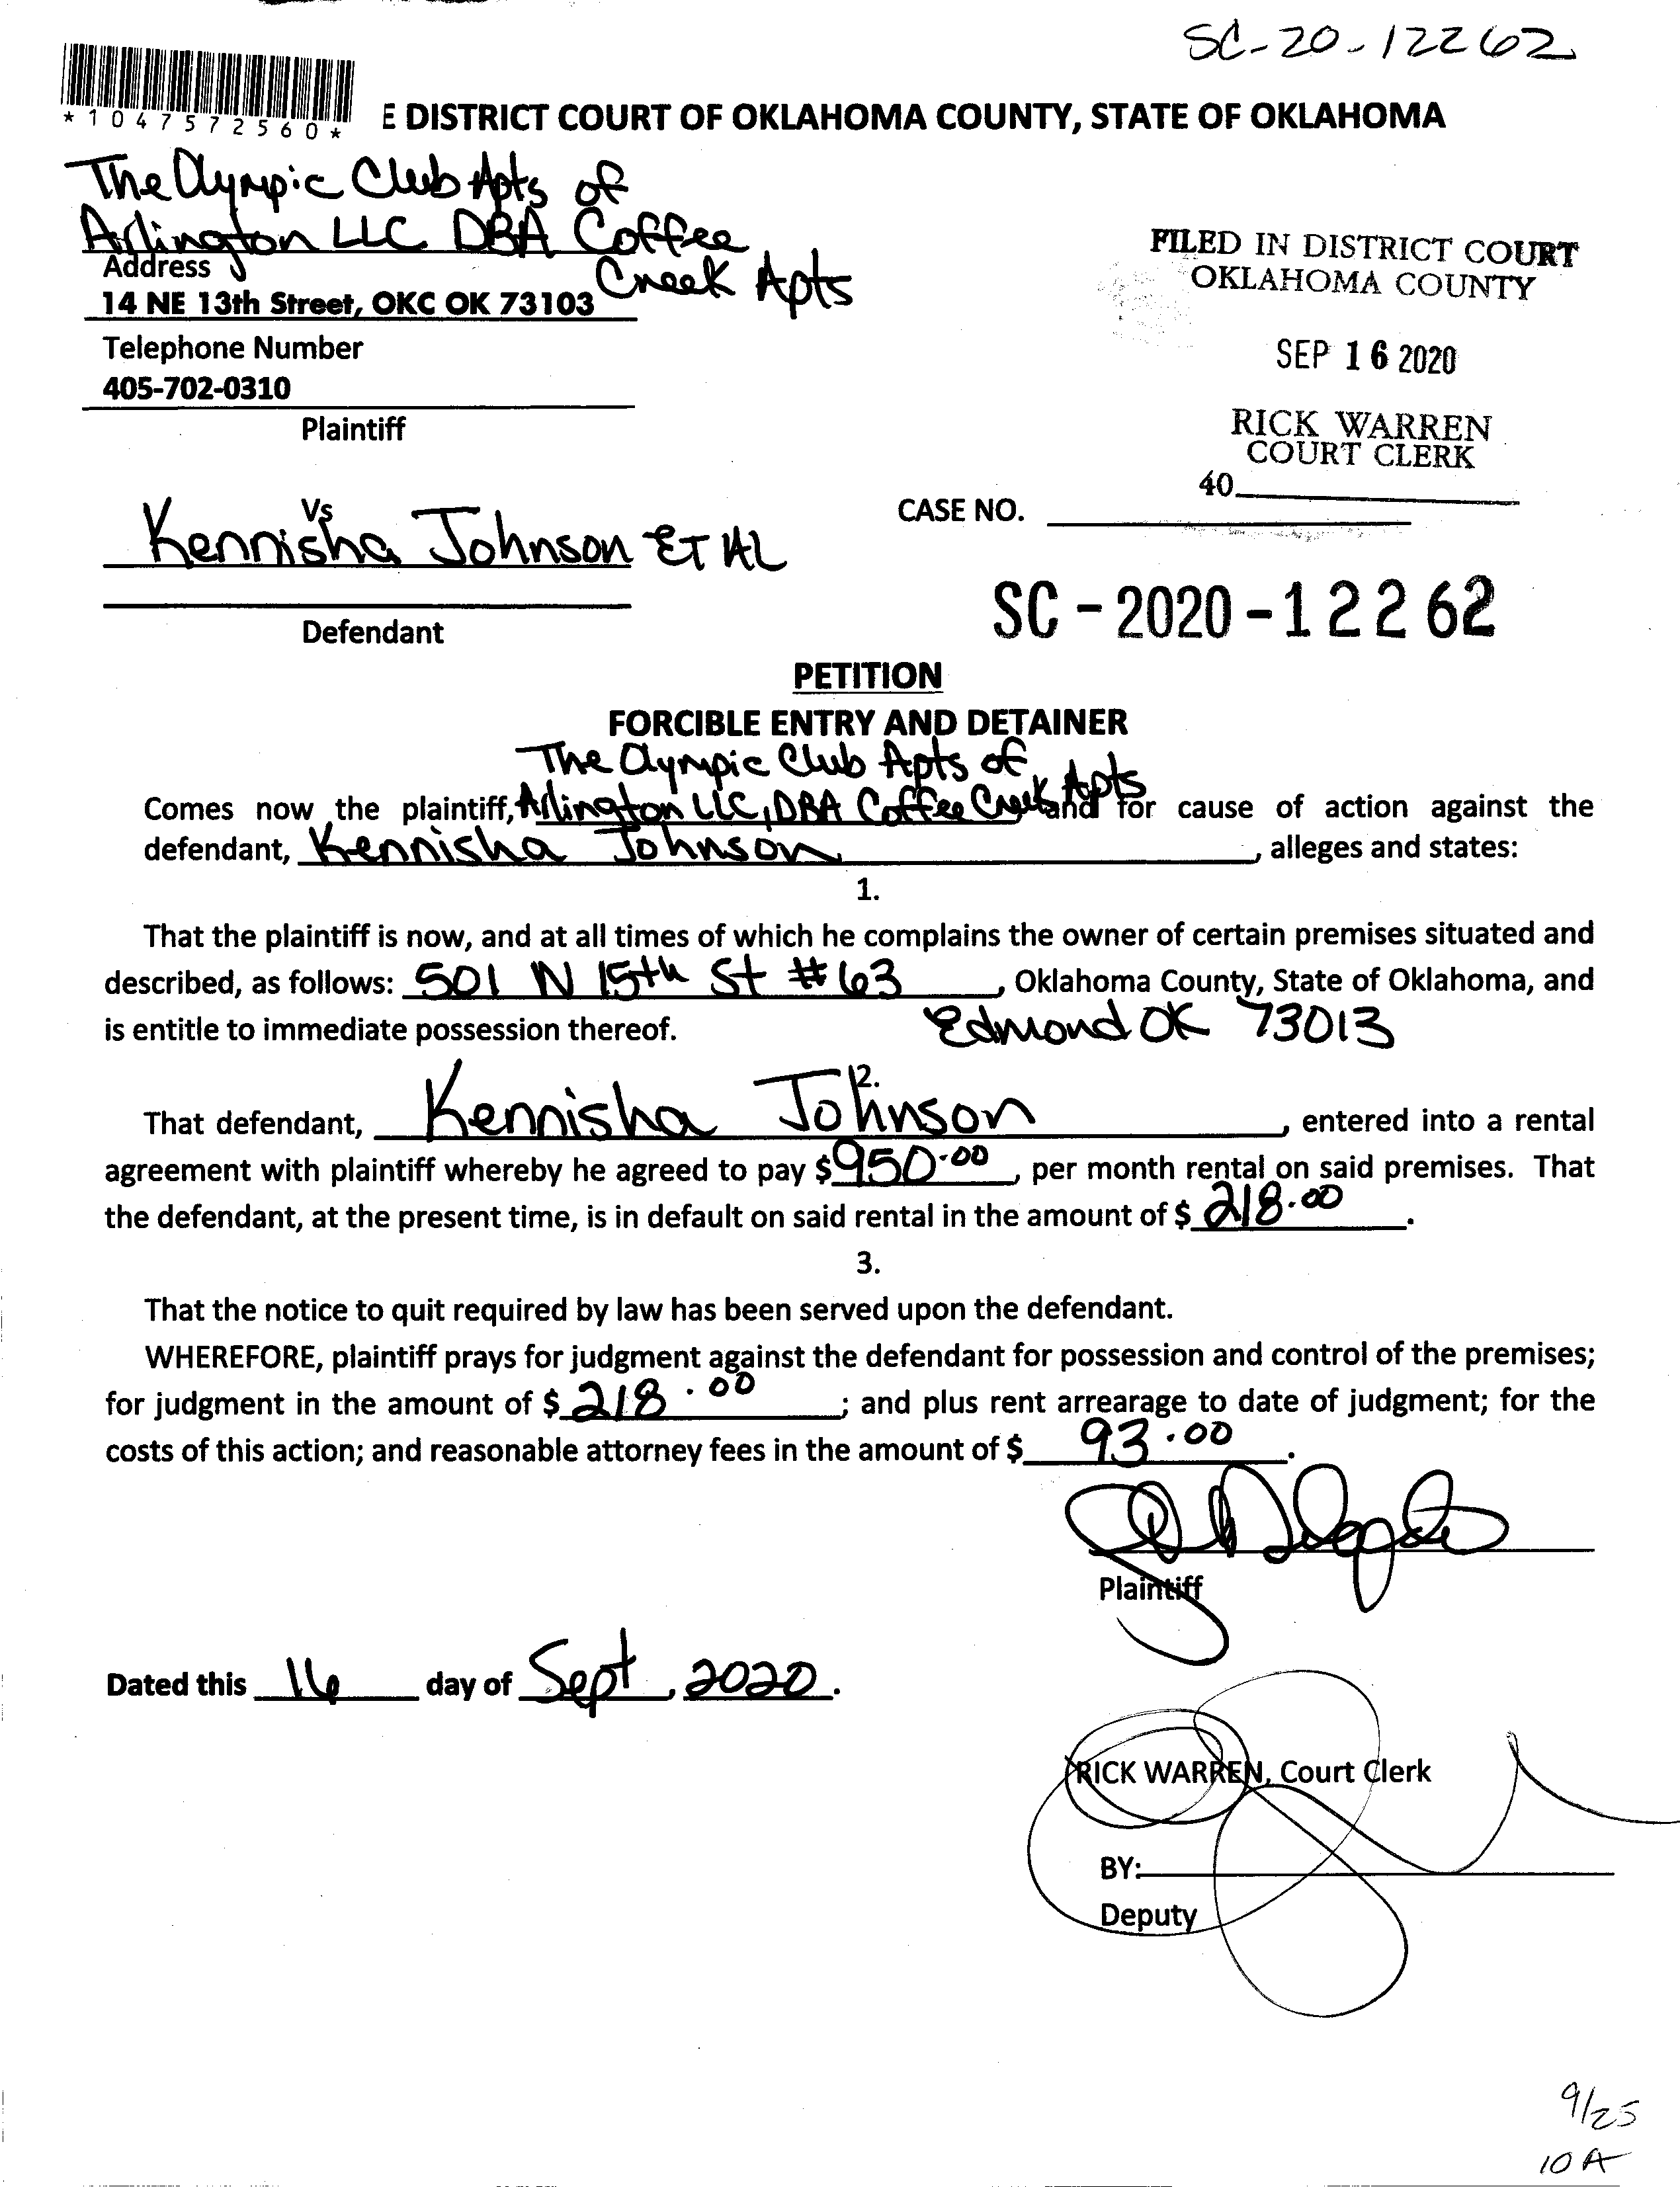 SC-20-12262
*1047572560*
E DISTRICT COURT OF OKLAHOMA COUNTY, STATE OF OKLAHOMA
The Olympic Club Apts of
Arlington LLC DBA Coffee
Creek Apts
Address
14 NE 13th Street, OKC OK 73103
Telephone Number
405-702-0310
Plaintiff
FILED IN DISTRICT COURT
OKLAHOMA COUNTY
SEP 16 2020
RICK WARREN
COURT CLERK
40
Vs
Kennisha Johnson ET AL
Defendant
CASE NO.
SC-2020-12262
PETITION
FORCIBLE ENTRY AND DETAINER
The Olympic Club Apts of
Comes now the plaintiff, Arlington LLC, DBA Coffee Creek Apts and for cause of action against the
defendant, Kennisha Johnson, alleges and states:
1.
That the plaintiff is now, and at all times of which he complains the owner of certain premises situated and
described, as follows: 501 N 15th St #63, Oklahoma County, State of Oklahoma, and
is entitle to immediate possession thereof. Edmond OK 73013
2.
That defendant, Kennisha Johnson, entered into a rental
agreement with plaintiff whereby he agreed to pay $950.00, per month rental on said premises. That
the defendant, at the present time, is in default on said rental in the amount of $218.00.
3.
That the notice to quit required by law has been served upon the defendant.
WHEREFORE, plaintiff prays for judgment against the defendant for possession and control of the premises;
for judgment in the amount of $218.00; and plus rent arrearage to date of judgment; for the
costs of this action; and reasonable attorney fees in the amount of $93.00.
Plaintiff
Dated this 16 day of Sept, 2020.
RICK WARREN, Court Clerk
BY:
Deputy
9/25
10 A